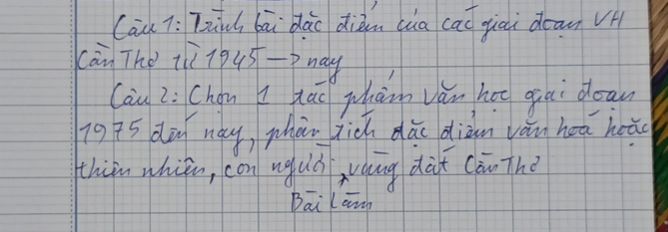 Câu 1: Trình bài đặc điểm của các giai đoạn VH
Cần Thơ từ 1945 -> nay
Câu 2: Chọn 1 tác phẩm văn học giai đoạn
1975 đến nay, phân tích đặc điểm văn hoá hoặc
thiên nhiên, con người, vùng đất Cần Thơ
Bài Làm